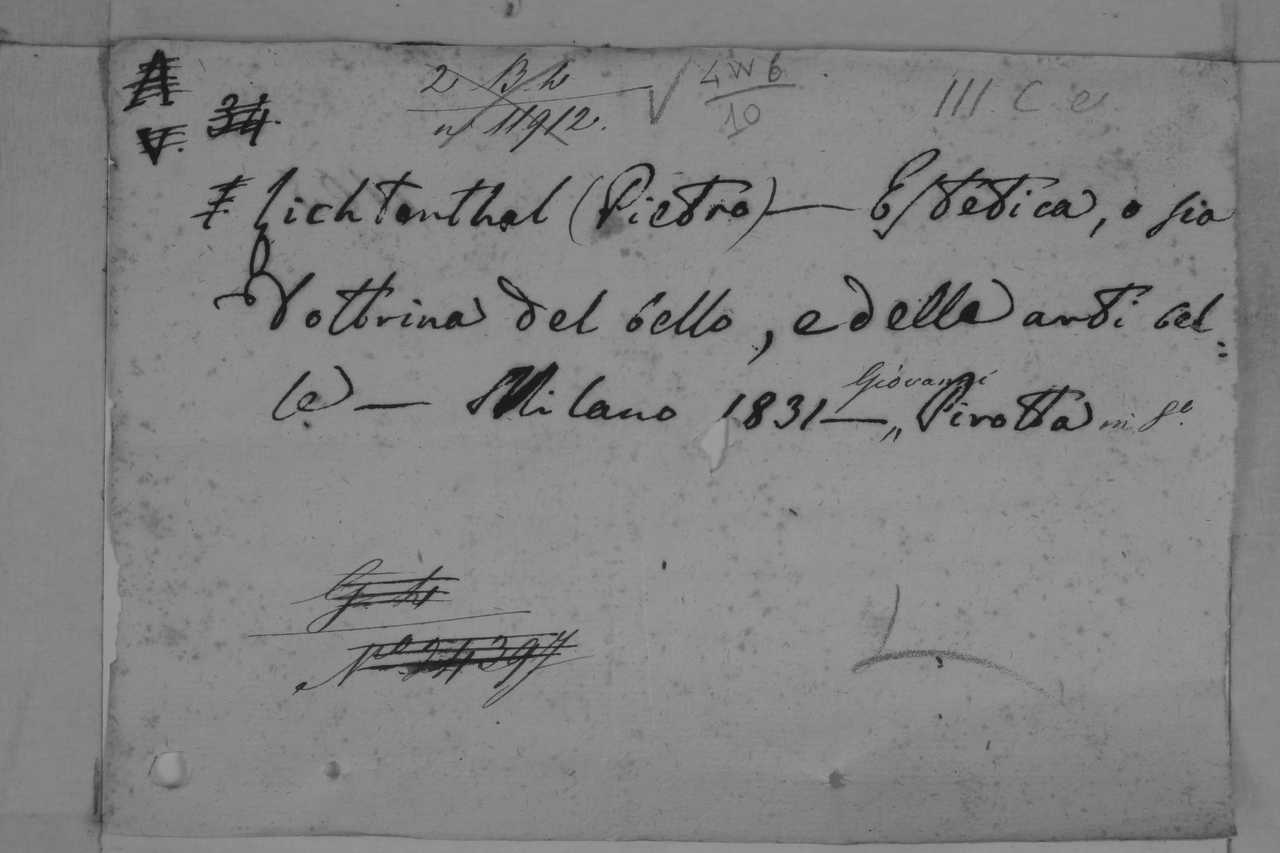 A
V. 34.
2 B h
n 11912.
√ 4 W 6
10
III C e
Lichtenthal (Pietro) — Estetica, o sia
Dottrina del bello, e delle arti bel:
le — Milano 1831 — „ Giovanni Pirotta in 8º.
Nº 24397
L